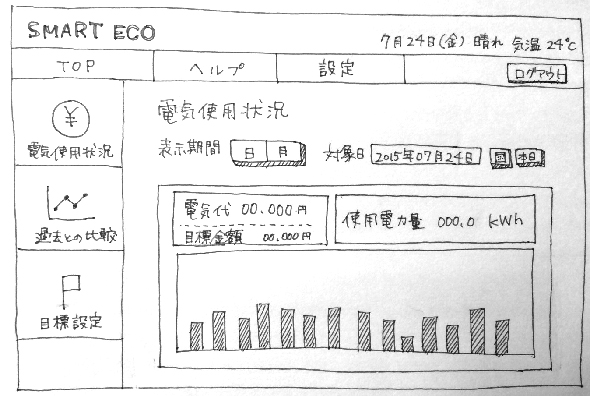 SMART ECO
7月24日(金) 晴れ 気温 24℃
TOP ヘルプ 設定 ログアウト
¥
電気使用状況
過去との比較
目標設定
電気使用状況
表示期間 日 月 対象日 2015年07月24日 本日
電気代 00.000円
目標金額 00.000円
使用電力量 000.0 kWh